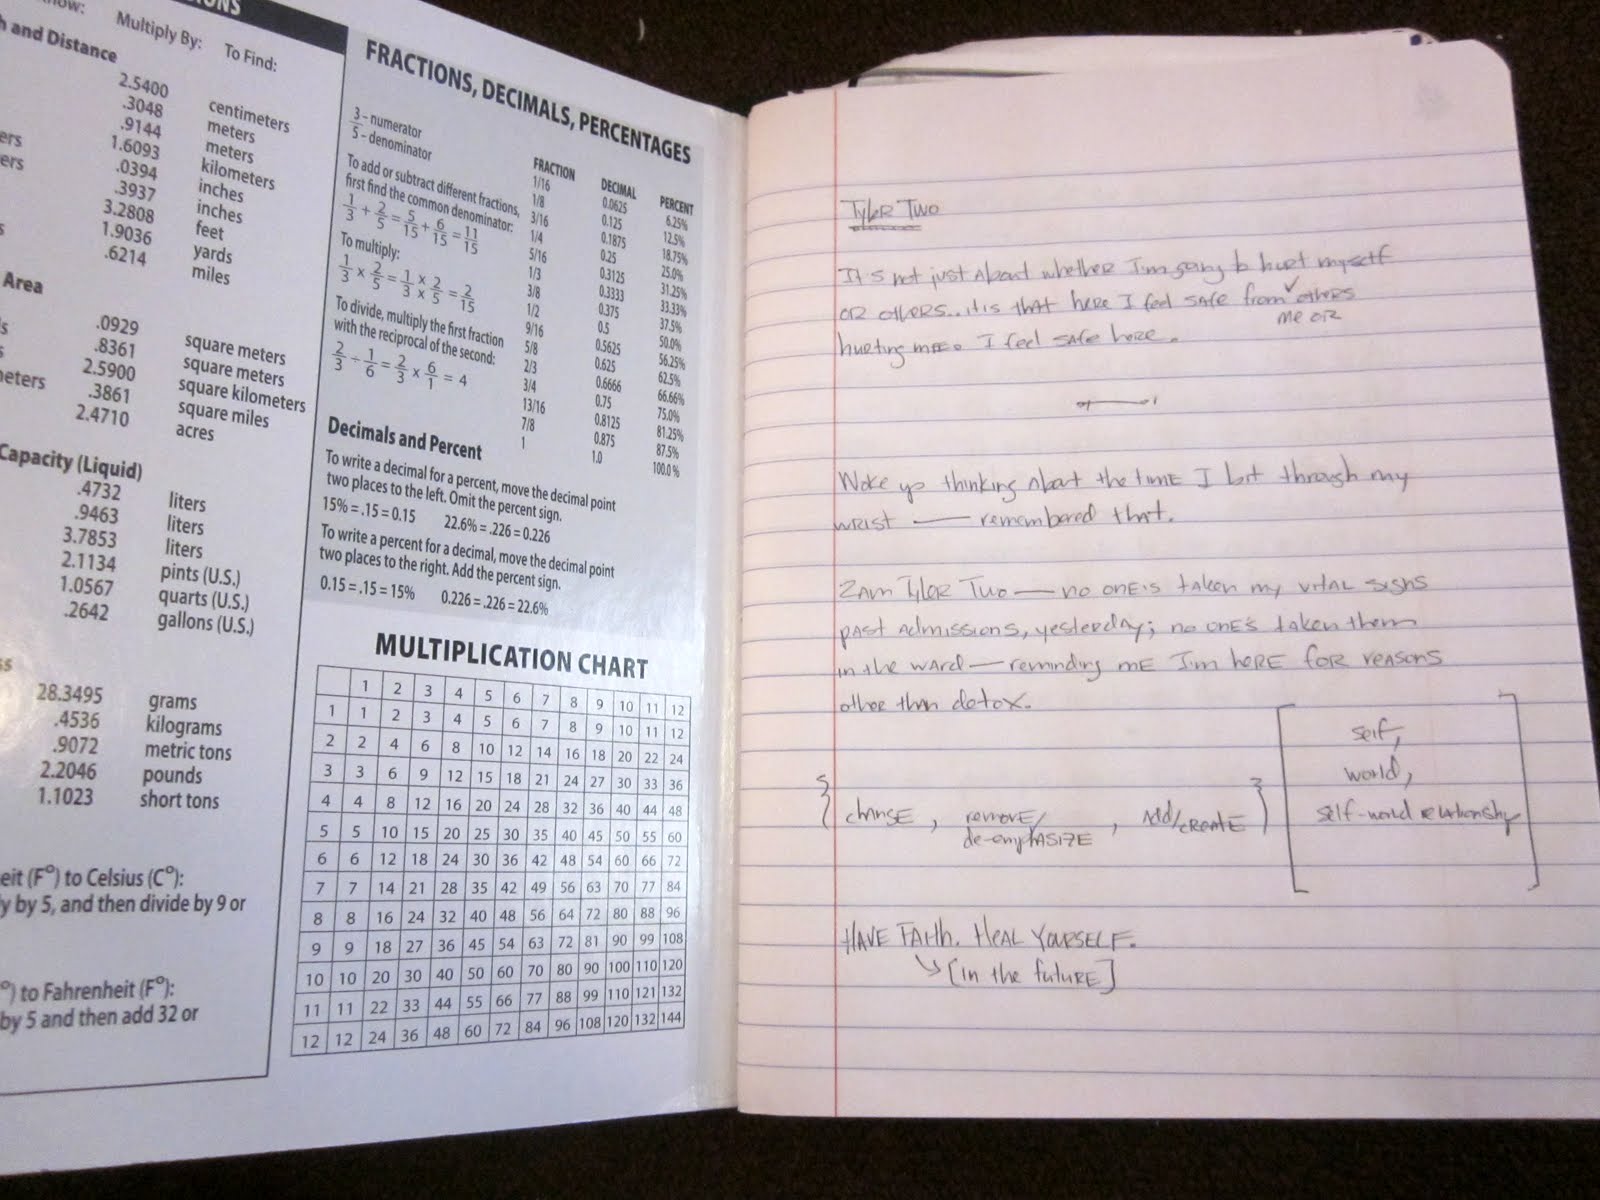 IONS
now: Multiply By: To Find:
h and Distance
2.5400 centimeters
.3048 meters
.9144 meters
ers 1.6093 kilometers
ers .0394 inches
.3937 inches
3.2808 feet
s 1.9036 yards
.6214 miles
Area
.0929 square meters
s .8361 square meters
2.5900 square kilometers
meters .3861 square miles
2.4710 acres
Capacity (Liquid)
.4732 liters
.9463 liters
3.7853 liters
2.1134 pints (U.S.)
1.0567 quarts (U.S.)
.2642 gallons (U.S.)
ss
28.3495 grams
.4536 kilograms
.9072 metric tons
2.2046 pounds
1.1023 short tons
eit (F°) to Celsius (C°):
y by 5, and then divide by 9 or
°) to Fahrenheit (F°):
by 5 and then add 32 or
FRACTIONS, DECIMALS, PERCENTAGES
3 – numerator
5 – denominator
To add or subtract different fractions,
first find the common denominator:
1/3 + 2/5 = 5/15 + 6/15 = 11/15
To multiply:
1/3 × 2/5 = 1/3 × 2/5 = 2/15
To divide, multiply the first fraction
with the reciprocal of the second:
2/3 ÷ 1/6 = 2/3 × 6/1 = 4
FRACTION DECIMAL PERCENT
1/16 0.0625 6.25%
1/8 0.125 12.5%
3/16 0.1875 18.75%
1/4 0.25 25.0%
5/16 0.3125 31.25%
1/3 0.3333 33.33%
3/8 0.375 37.5%
1/2 0.5 50.0%
9/16 0.5625 56.25%
5/8 0.625 62.5%
2/3 0.6666 66.66%
3/4 0.75 75.0%
13/16 0.8125 81.25%
7/8 0.875 87.5%
1 1.0 100.0%
Decimals and Percent
To write a decimal for a percent, move the decimal point
two places to the left. Omit the percent sign.
15% = .15 = 0.15 22.6% = .226 = 0.226
To write a percent for a decimal, move the decimal point
two places to the right. Add the percent sign.
0.15 = .15 = 15% 0.226 = .226 = 22.6%
MULTIPLICATION CHART
1 2 3 4 5 6 7 8 9 10 11 12
1 1 2 3 4 5 6 7 8 9 10 11 12
2 2 4 6 8 10 12 14 16 18 20 22 24
3 3 6 9 12 15 18 21 24 27 30 33 36
4 4 8 12 16 20 24 28 32 36 40 44 48
5 5 10 15 20 25 30 35 40 45 50 55 60
6 6 12 18 24 30 36 42 48 54 60 66 72
7 7 14 21 28 35 42 49 56 63 70 77 84
8 8 16 24 32 40 48 56 64 72 80 88 96
9 9 18 27 36 45 54 63 72 81 90 99 108
10 10 20 30 40 50 60 70 80 90 100 110 120
11 11 22 33 44 55 66 77 88 99 110 121 132
12 12 24 36 48 60 72 84 96 108 120 132 144
Tyler Two
It's not just about whether I'm going to hurt myself
or others...it is that here I feel safe from others
me or
hurting me. I feel safe here.
Woke up thinking about the time I bit through my
wrist — remembered that.
2am Tyler Two — no one's taken my vital signs
past admissions, yesterday; no one's taken them
in the ward — reminding me I'm here for reasons
other than detox.
{ change, remove/ de-emphasize, add/create } [ self,
world,
self-world relationship ]
Have Faith. Heal Yourself.
↳ [in the future]